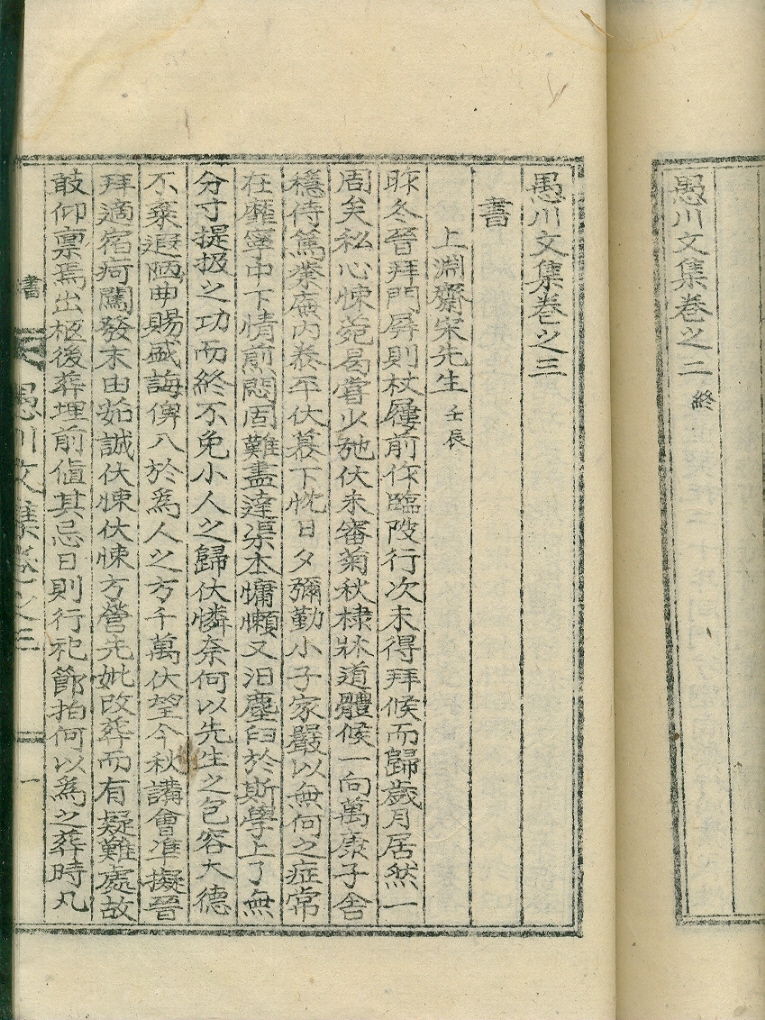 愚川文集卷之二 終
愚川文集卷之三
書
上淵齋宋先生 壬辰
昨冬晉拜門屛則杖屨前作臨陂行次未得拜候而歸歲月居然一
周矣私心悚菀曷嘗少弛伏未審菊秋棣牀道體候一向萬康子舍
穩侍篤棐庙內卷平伏慕下忱日夕彌勤小子家嚴以無何之症常
在靡寧中下情煎悶固難盡達渠本慵懶又汩塵臼於斯學上了無
分寸提掇之功而終不免小人之歸伏憐奈何以先生之包容大德
不棄遐陋申賜盛誨俾入於爲人之方千萬伏望今秋講會準擬晉
拜適宿痾闖發末由如誠伏悚伏悚方營先妣改葬而有疑難處故
敢仰禀焉出柩後葬埋前値其忌日則行祀節拍何以爲之葬時凡
書 愚川文集卷之三 一